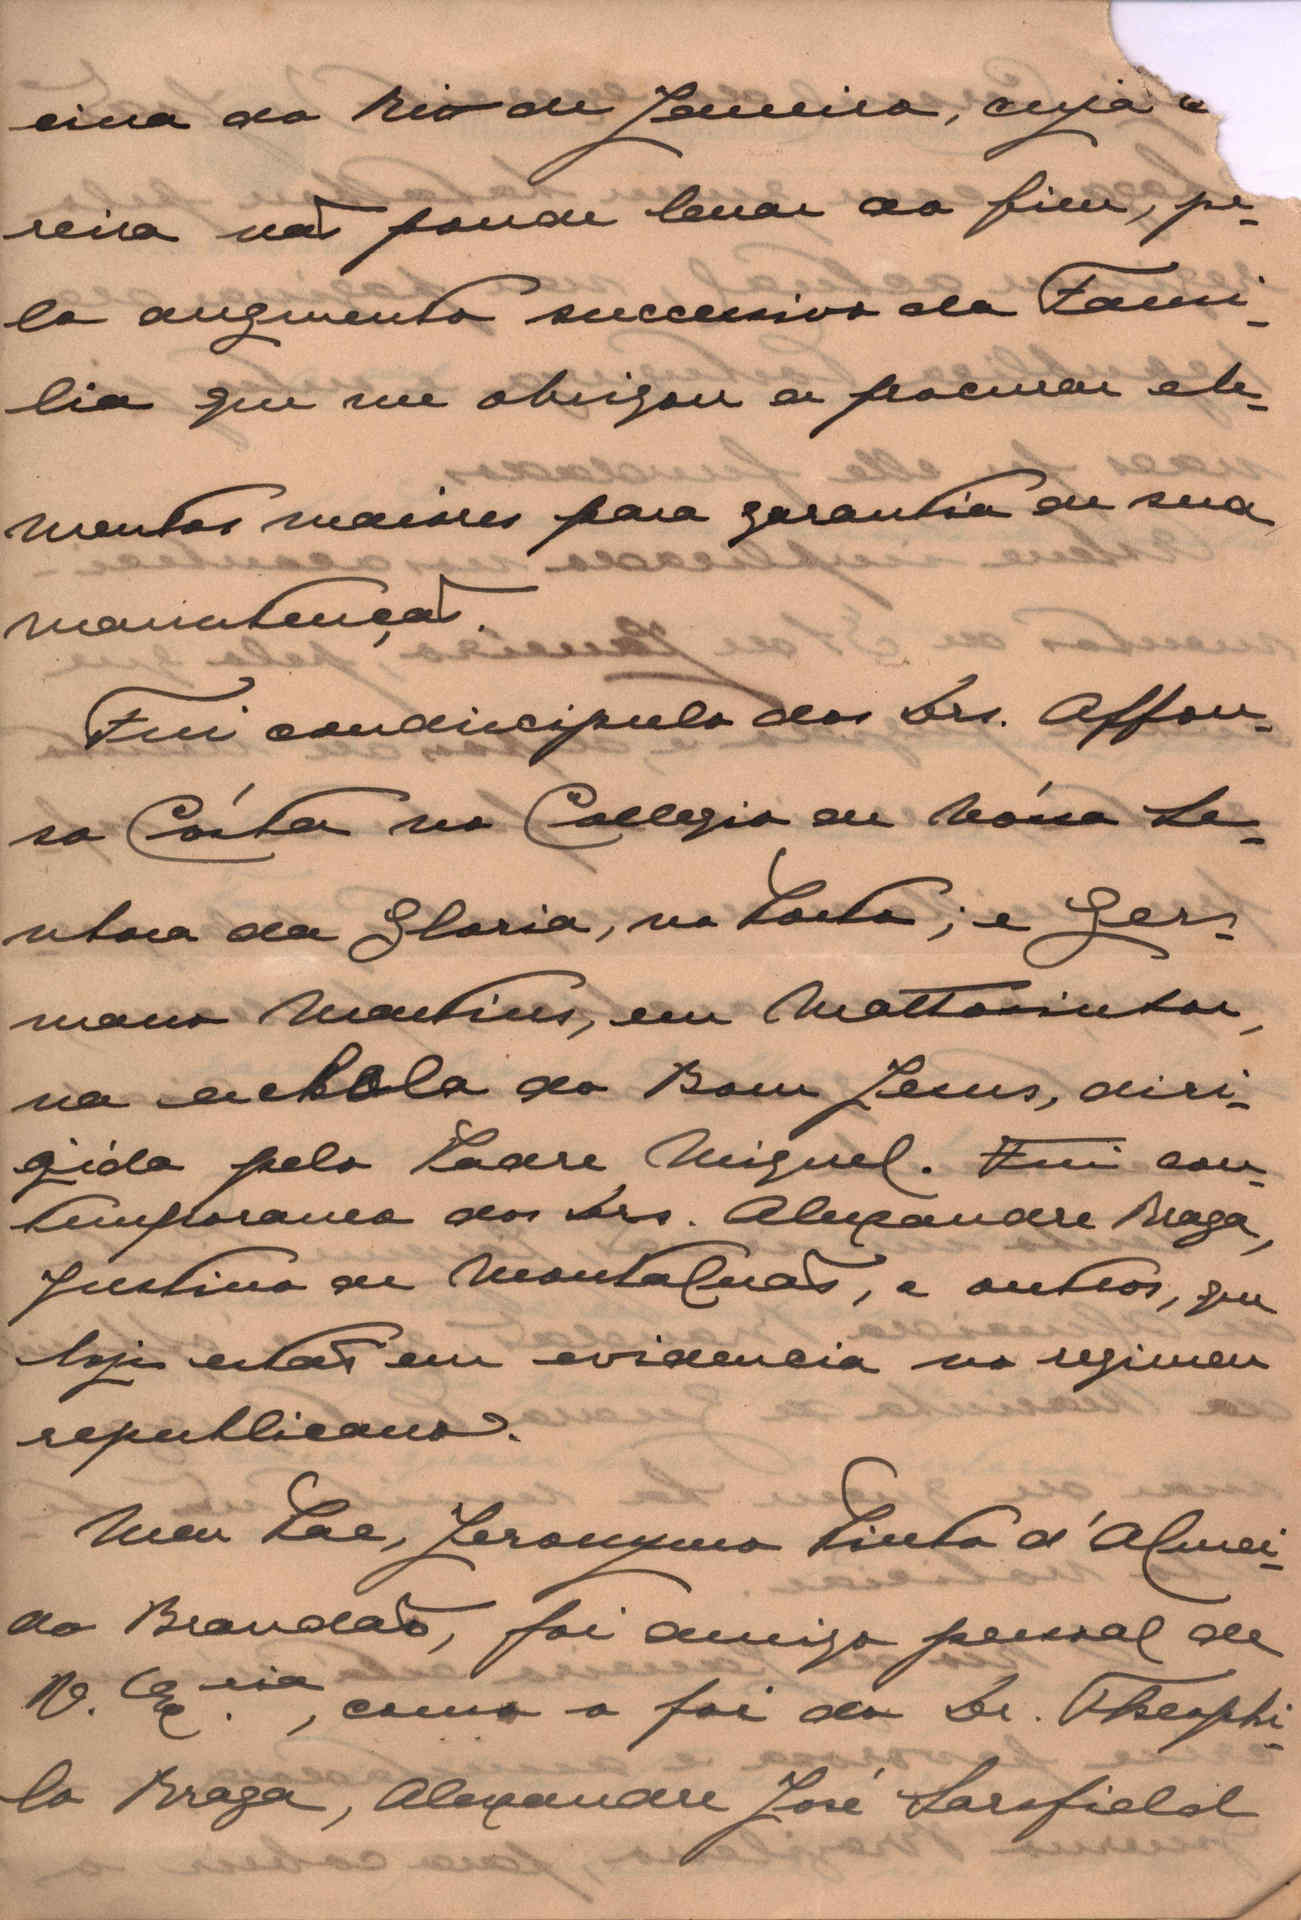 cina do Rio de Janeiro, cuja
reira não poude levar ao fim, pe-
lo augmento successivo da Fami-
lia que me obrigou a procurar ele-
mentos maiores para garantia de sua
manutenção.
Fui condiscipulo dos Drs. Affon-
so Cósta no Collegio de Nóssa Se-
nhora da Gloria, no Porto; e Ger-
mano Martins, em Mattosinhos,
na eschola do Bom Jesus, diri-
gida pelo Padre Miguel. Fui con-
temporaneo dos Drs. Alexandre Braga,
Justino de Montalvão, e outros, que
hoje estão em evidencia no regimen
republicano.
Meu Pae, Jeronymo Pinto d'Almei-
da Brandão, foi amigo pessoal de
V. Ex.cia, como o foi do Dr. Theophi-
lo Braga, Alexandre José Sarsfield